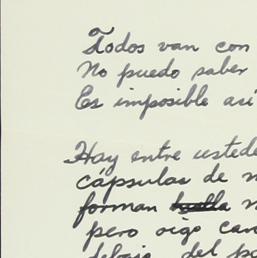 Todos van con
No puedo saber
Es imposible así
Hay entre ustede
cápsulas de n
forman huella n
pero oigo can
debajo del pa